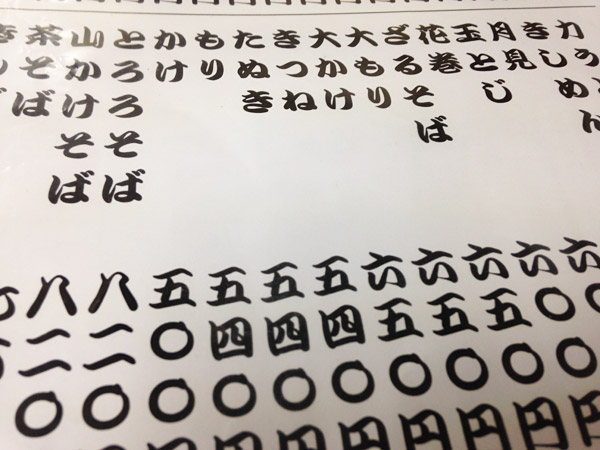 力う
きしめん
月見
玉とじ
花巻
ざるそば
大もり
大かけ
きつね
たぬき
もり
かけ
とろろそば
山かけそば
茶そば
六〇
六〇〇円
六五〇円
六五〇円
六五〇円
五四〇円
五四〇円
五四〇円
五〇〇円
八二〇円
八二〇